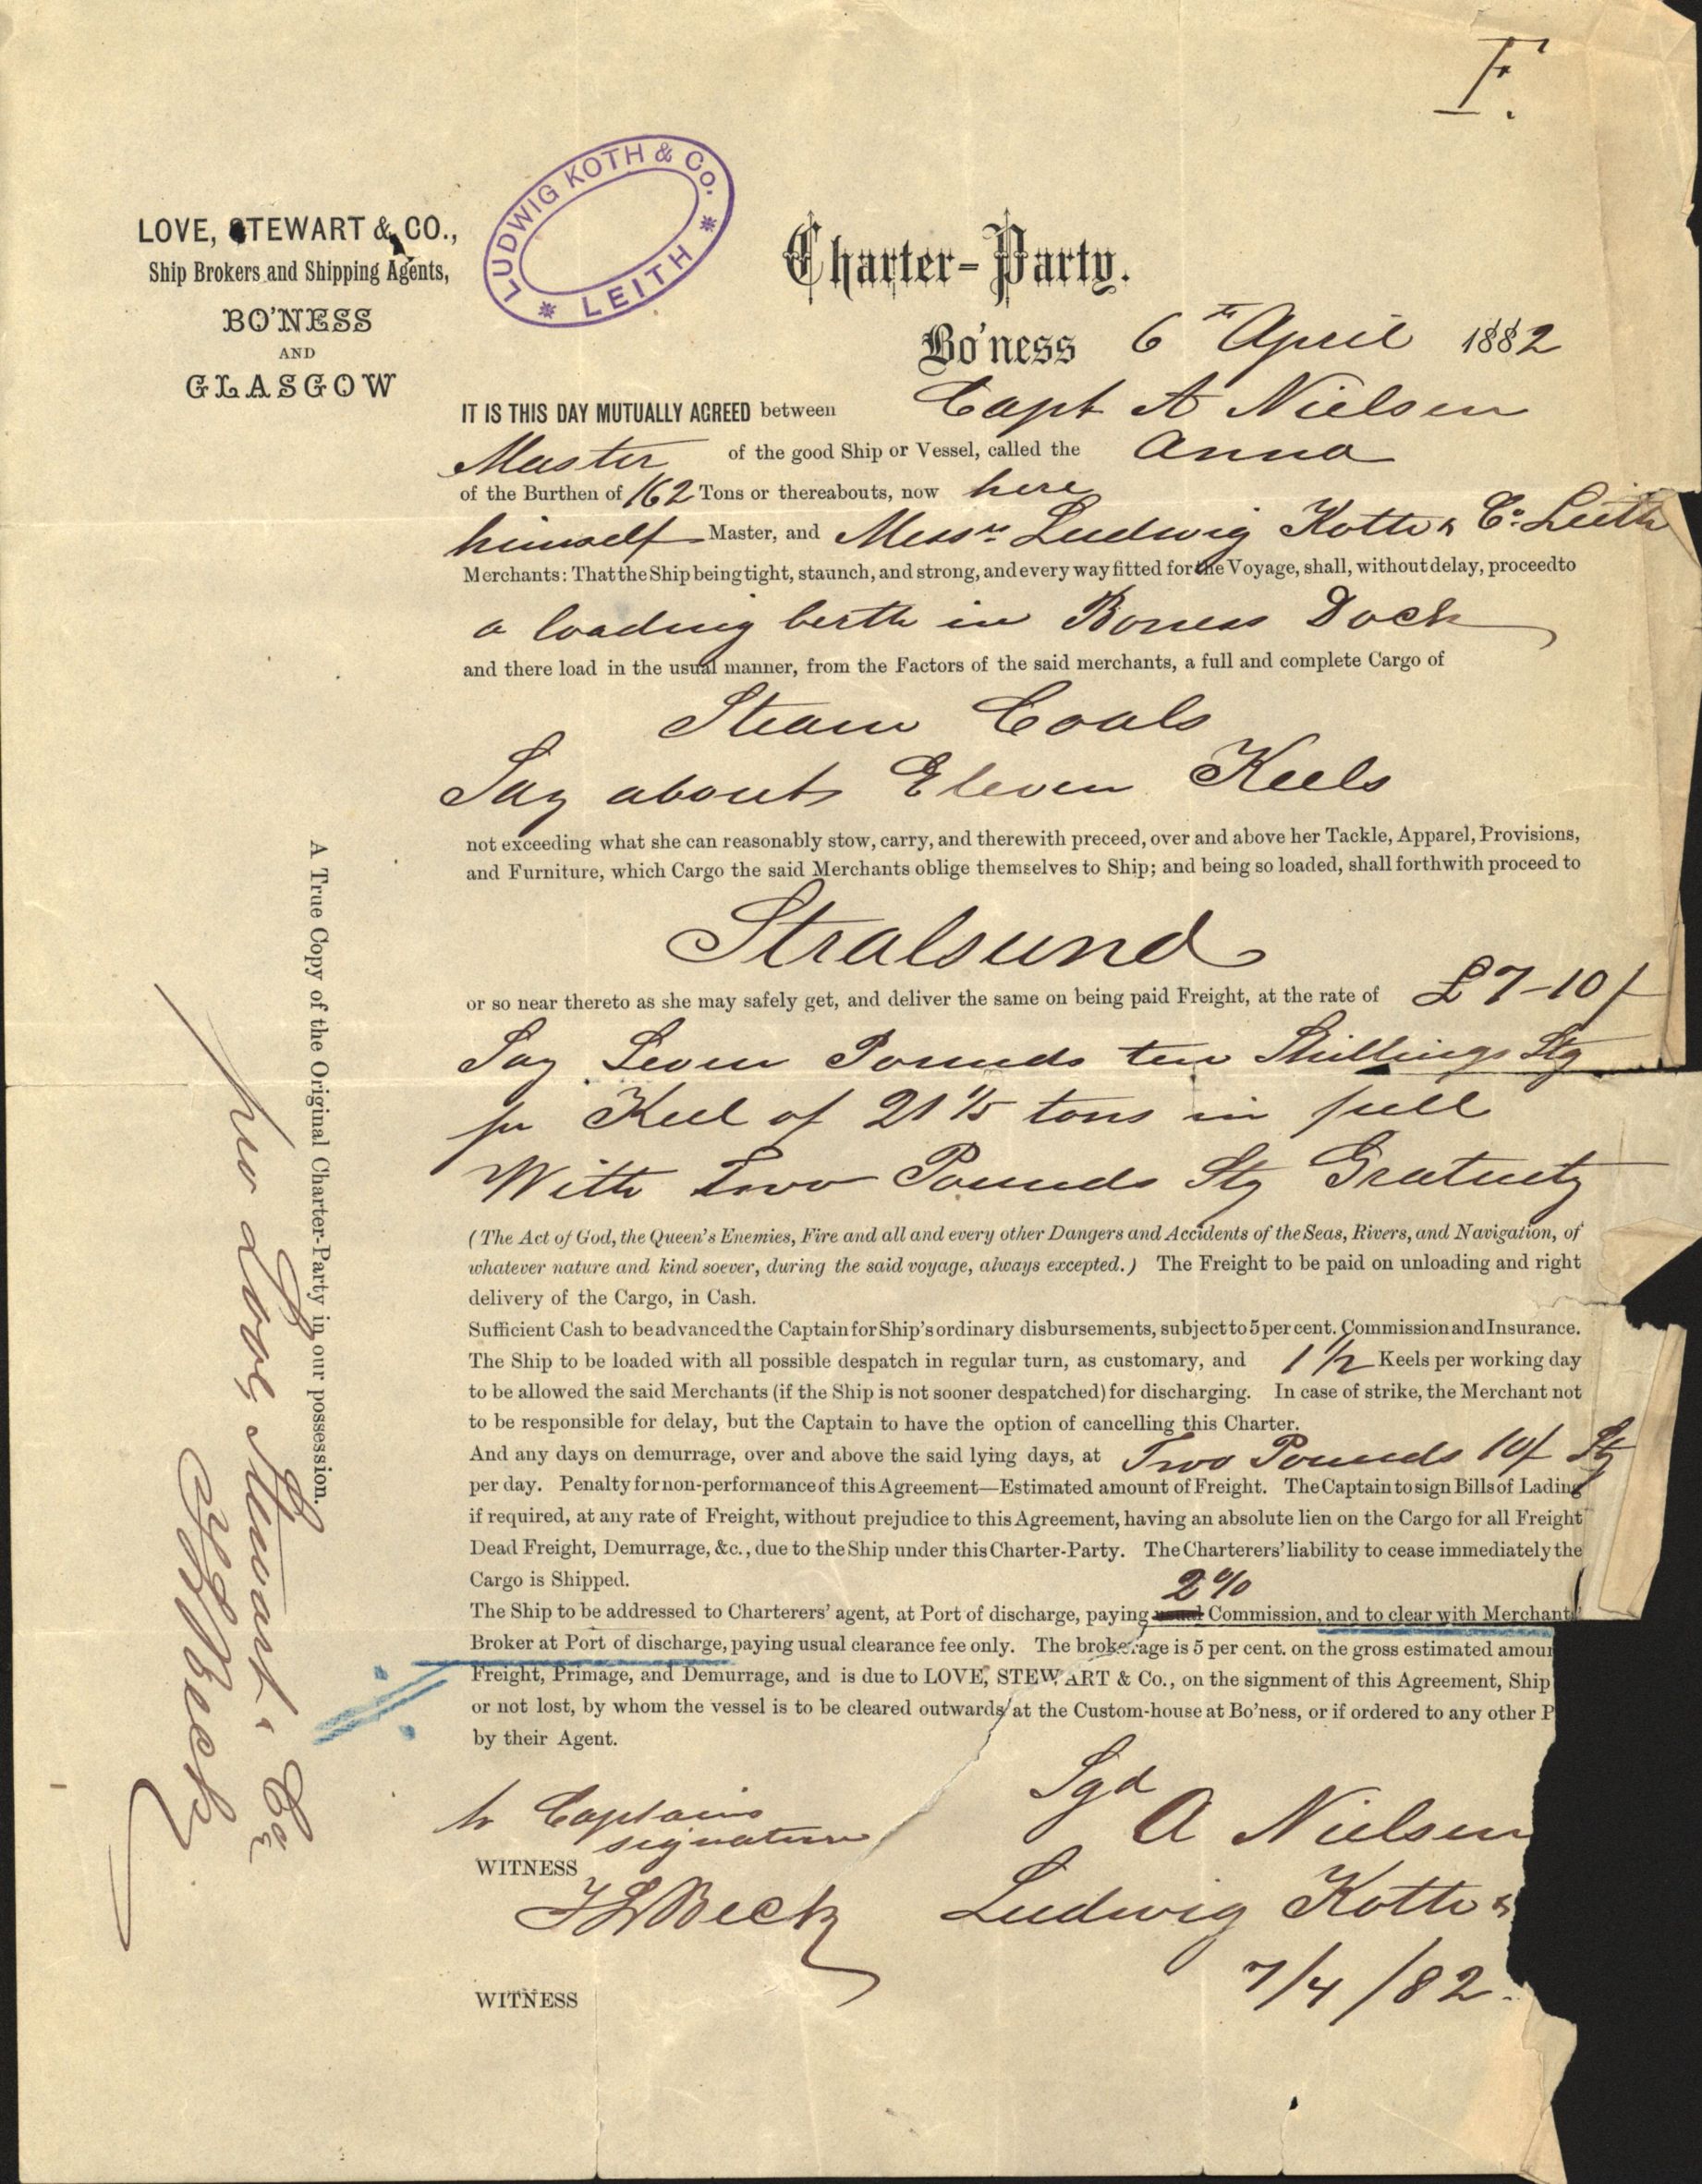 F.
LOVE, STEWART & CO.,
Ship Brokers and Shipping Agents,
BO'NESS
AND
GLASGOW
LUDWIG KOTH & Co.
* LEITH *
Charter-Party.
Bo'ness 6th April 1882
IT IS THIS DAY MUTUALLY AGREED between Capt A Nielsen
Master of the good Ship or Vessel, called the Anna
of the Burthen of 162 Tons or thereabouts, now here
himself Master, and Messrs Ludwig Koth & Co Leith
Merchants: That the Ship being tight, staunch, and strong, and every way fitted for the Voyage, shall, without delay, proceed to
a loading berth in Boness Dock
and there load in the usual manner, from the Factors of the said merchants, a full and complete Cargo of
Steam Coals
Say about Eleven Keels
not exceeding what she can reasonably stow, carry, and therewith preceed, over and above her Tackle, Apparel, Provisions,
and Furniture, which Cargo the said Merchants oblige themselves to Ship; and being so loaded, shall forthwith proceed to
Stralsund
or so near thereto as she may safely get, and deliver the same on being paid Freight, at the rate of £7-10/-
Say Seven Pounds ten Shillings Stg
per Keel of 21 1/5 tons in full
With Two Pounds Stg Gratuity
(The Act of God, the Queen's Enemies, Fire and all and every other Dangers and Accidents of the Seas, Rivers, and Navigation, of
whatever nature and kind soever, during the said voyage, always excepted.) The Freight to be paid on unloading and right
delivery of the Cargo, in Cash.
Sufficient Cash to be advanced the Captain for Ship's ordinary disbursements, subject to 5 per cent. Commission and Insurance.
The Ship to be loaded with all possible despatch in regular turn, as customary, and 1 1/2 Keels per working day
to be allowed the said Merchants (if the Ship is not sooner despatched) for discharging. In case of strike, the Merchant not
to be responsible for delay, but the Captain to have the option of cancelling this Charter.
And any days on demurrage, over and above the said lying days, at Two Pounds 10/ Stg
per day. Penalty for non-performance of this Agreement—Estimated amount of Freight. The Captain to sign Bills of Lading
if required, at any rate of Freight, without prejudice to this Agreement, having an absolute lien on the Cargo for all Freight
Dead Freight, Demurrage, &c., due to the Ship under this Charter-Party. The Charterers' liability to cease immediately the
Cargo is Shipped.
2%
The Ship to be addressed to Charterers' agent, at Port of discharge, paying usual Commission, and to clear with Merchant
Broker at Port of discharge, paying usual clearance fee only. The brokerage is 5 per cent. on the gross estimated amoun
Freight, Primage, and Demurrage, and is due to LOVE, STEWART & Co., on the signment of this Agreement, Ship
or not lost, by whom the vessel is to be cleared outwards at the Custom-house at Bo'ness, or if ordered to any other P
by their Agent.
Sgd
A Nielsen
to Captains
signature
WITNESS
Beck
Ludwig Koth &
7/4/82.
WITNESS
A True Copy of the Original Charter-Party in our possession.
pro Love, Stewart & Co
Beck